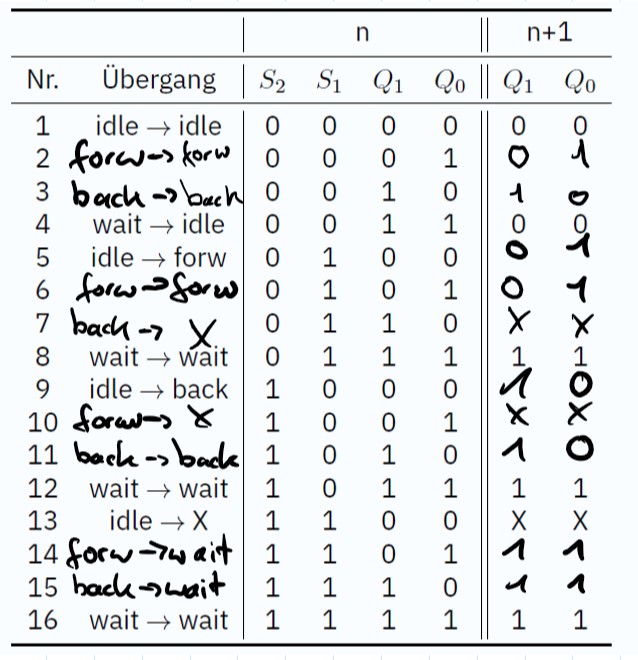 n n+1
Nr. Übergang S₂ S₁ Q₁ Q₀ Q₁ Q₀
1 idle → idle 0 0 0 0 0 0
2 forw → forw 0 0 0 1 0 1
3 back → back 0 0 1 0 1 0
4 wait → idle 0 0 1 1 0 0
5 idle → forw 0 1 0 0 0 1
6 forw → forw 0 1 0 1 0 1
7 back → X 0 1 1 0 X X
8 wait → wait 0 1 1 1 1 1
9 idle → back 1 0 0 0 1 0
10 forw → X 1 0 0 1 X X
11 back → back 1 0 1 0 1 0
12 wait → wait 1 0 1 1 1 1
13 idle → X 1 1 0 0 X X
14 forw → wait 1 1 0 1 1 1
15 back → wait 1 1 1 0 1 1
16 wait → wait 1 1 1 1 1 1